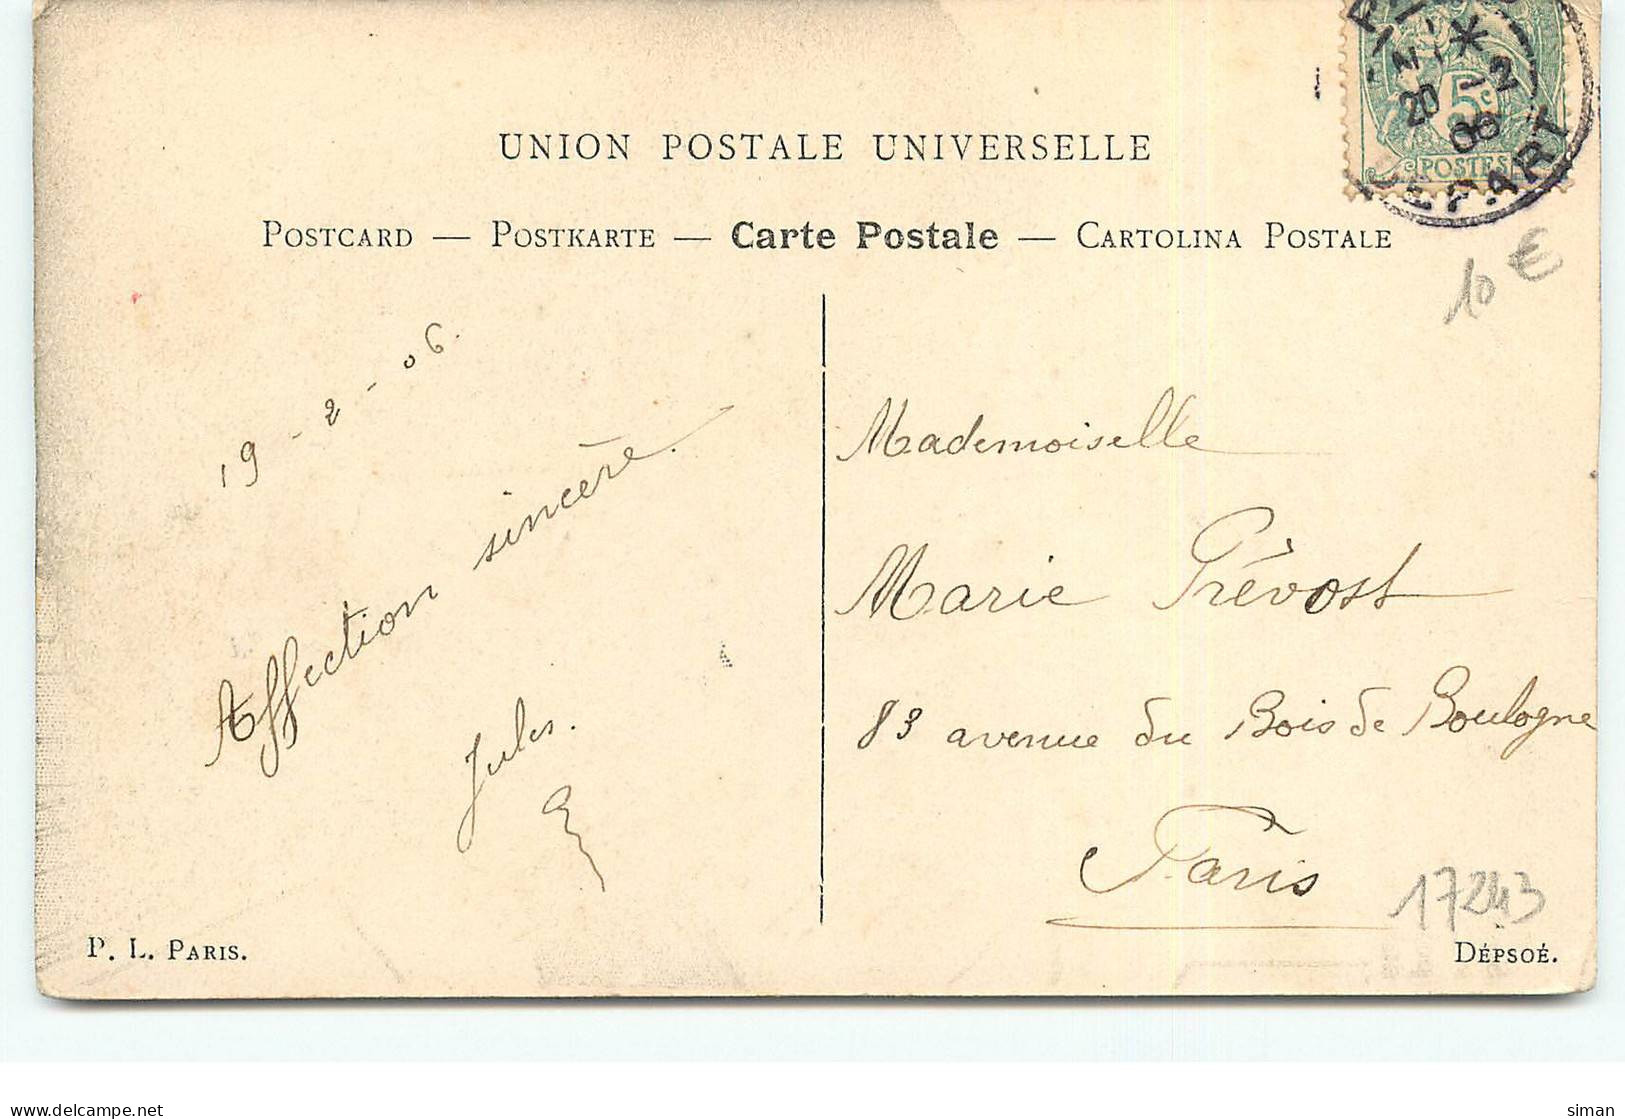 UNION POSTALE UNIVERSELLE
POSTCARD — POSTKARTE — Carte Postale — CARTOLINA POSTALE
20
5c
POSTES
DEPART
10 €
19 - 2 - 06.
Affection sincère.
Jules.
Mademoiselle
Marie Prévost
83 avenue du Bois de Boulogne
Paris
17243
P. L. PARIS.
DÉPSOÉ.
delcampe.net
siman